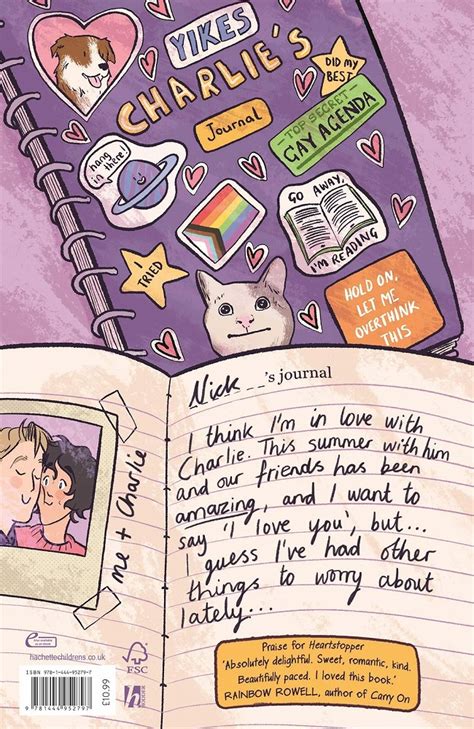 YIKES
CHARLIE'S
Journal
DID MY
BEST
TOP SECRET
GAY AGENDA
hang
in there!
GO AWAY,
I'M READING
I
TRIED
HOLD ON,
LET ME
OVERTHINK
THIS
Nick__'s journal
I think I'm in love with
Charlie. This summer with him
and our friends has been
amazing, and I want to
say 'I love you', but...
I guess I've had other
things to worry about
lately...
me + Charlie
hachettechildrens.co.uk
FSC
ISBN 978-1-444-95279-7
9 781444 952797
£10.99
h
HODDER
Praise for Heartstopper
'Absolutely delightful. Sweet, romantic, kind.
Beautifully paced. I loved this book.'
RAINBOW ROWELL, author of Carry On